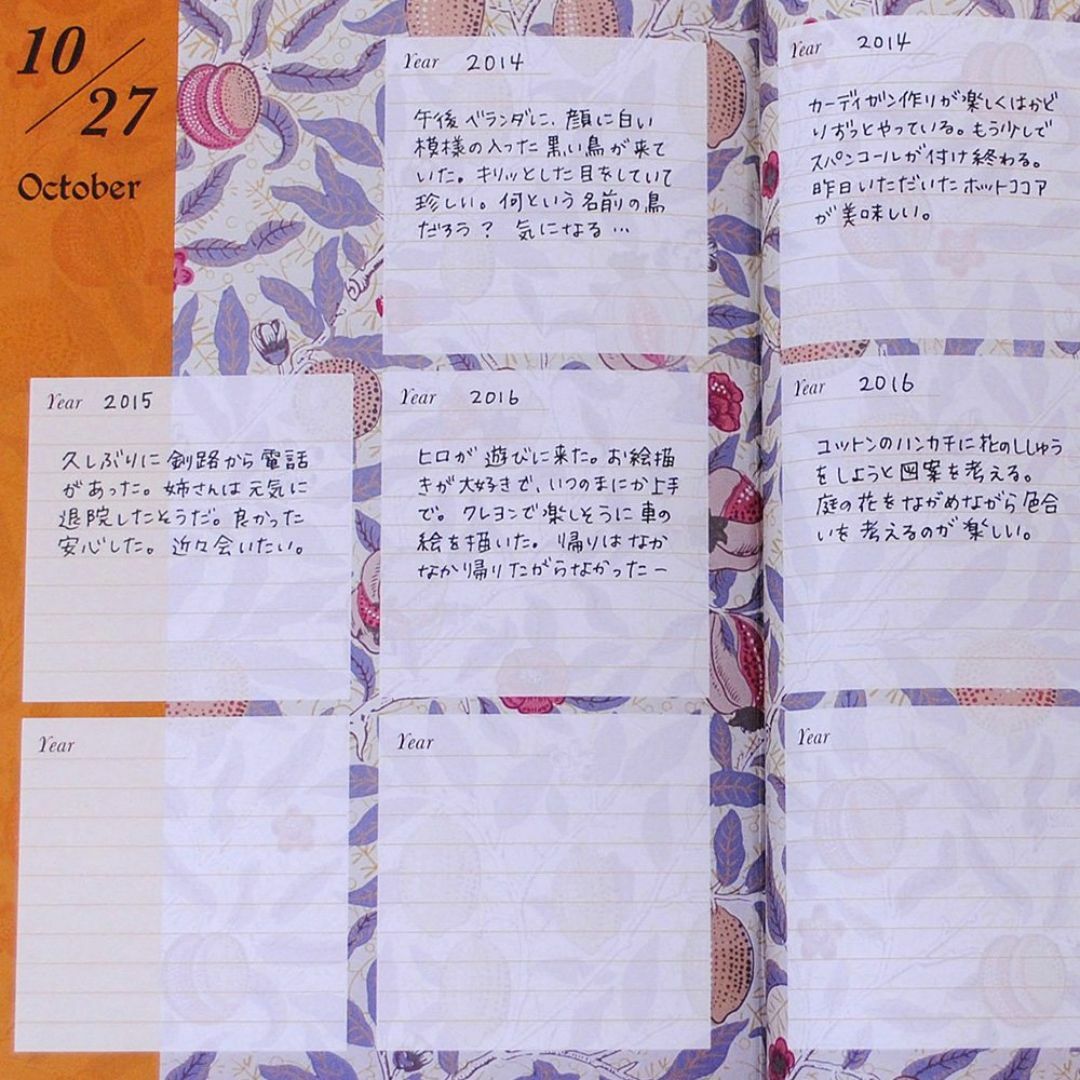 10/27
October
Year 2014
午後ベランダに、顔に白い
模様の入った黒い鳥が来て
いた。キリッとした目をしていて
珍しい。何という名前の鳥
だろう？ 気になる…
Year 2015
久しぶりに釧路から電話
があった。姉さんは元気に
退院したそうだ。良かった
安心した。近々会いたい。
Year 2016
ヒロが遊びに来た。お絵描
きが大好きで、いつのまにか上手
で。クレヨンで楽しそうに車の
絵を描いた。帰りはなか
なか帰りたがらなかったー
Year
Year
Year 2014
カーディガン作りが楽しくはかど
りずっとやっている。もう少しで
スパンコールが付け終わる。
昨日いただいたホットココア
が美味しい。
Year 2016
コットンのハンカチに花のししゅう
をしようと図案を考える。
庭の花をながめながら色合
いを考えるのが楽しい。
Year